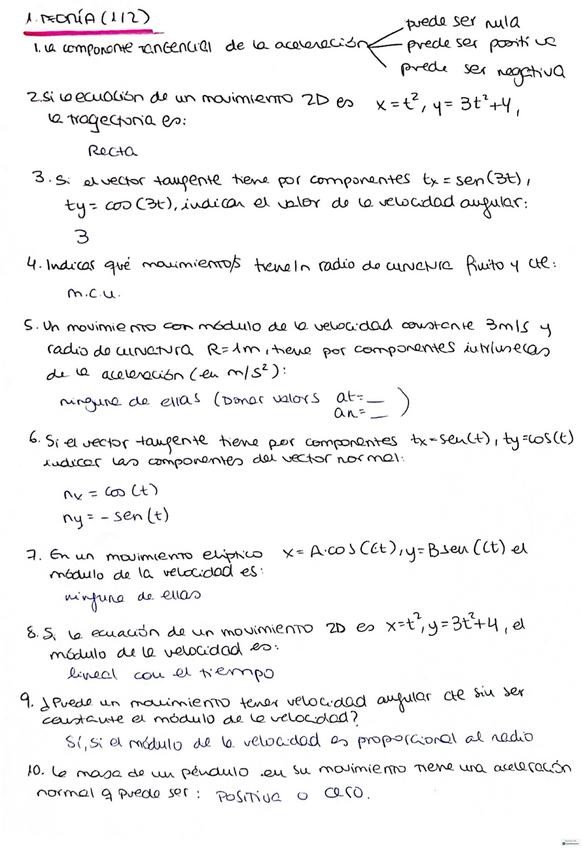 1. TEORÍA (1/2)
1. la componente TANGENCIAL de la aceleración
puede ser nula
puede ser positiva
puede ser negativa
2. Si la ecuación de un movimiento 2D es x = t², y = 3t²+4,
la trayectoria es:
Recta
3. Si el vector tangente tiene por componentes tx = sen(3t),
ty = cos(3t), indicar el valor de la velocidad angular:
3
4. Indicar qué movimiento/s tiene/n radio de curvatura finito y cte:
m.c.u.
5. Un movimiento con módulo de la velocidad constante 3m/s y
radio de curvatura R=1m, tiene por componentes intrínsecas
de la aceleración (en m/s²):
ninguna de ellas (Donar valors at=_
an=_ )
6. Si el vector tangente tiene por componentes tx=sen(t), ty=cos(t)
indicar las componentes del vector normal:
nx = cos(t)
ny = - sen(t)
7. En un movimiento elíptico x = A·cos(Ct), y=Bsen(Ct) el
módulo de la velocidad es:
ninguna de ellas
8. Si la ecuación de un movimiento 2D es x=t², y=3t²+4, el
módulo de la velocidad es:
lineal con el tiempo
9. ¿Puede un movimiento tener velocidad angular cte sin ser
constante el módulo de la velocidad?
Sí, si el módulo de la velocidad es proporcional al radio
10. La masa de un péndulo en su movimiento tiene una aceleración
normal q puede ser: POSITIVA o CERO.